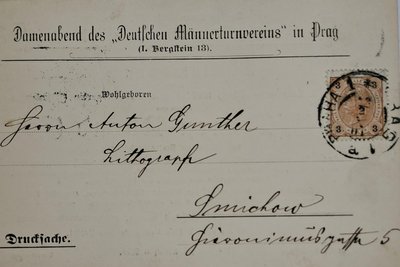 Damenabend des „Deutschen Männerturnvereins" in Prag
(I. Bergstein 13).
Wohlgeboren
Herrn Anton Gunther
Lithograph
Smichow
Hieronimusgasse 5
Drucksache.
3 3
3 3
PRAHA PRAG